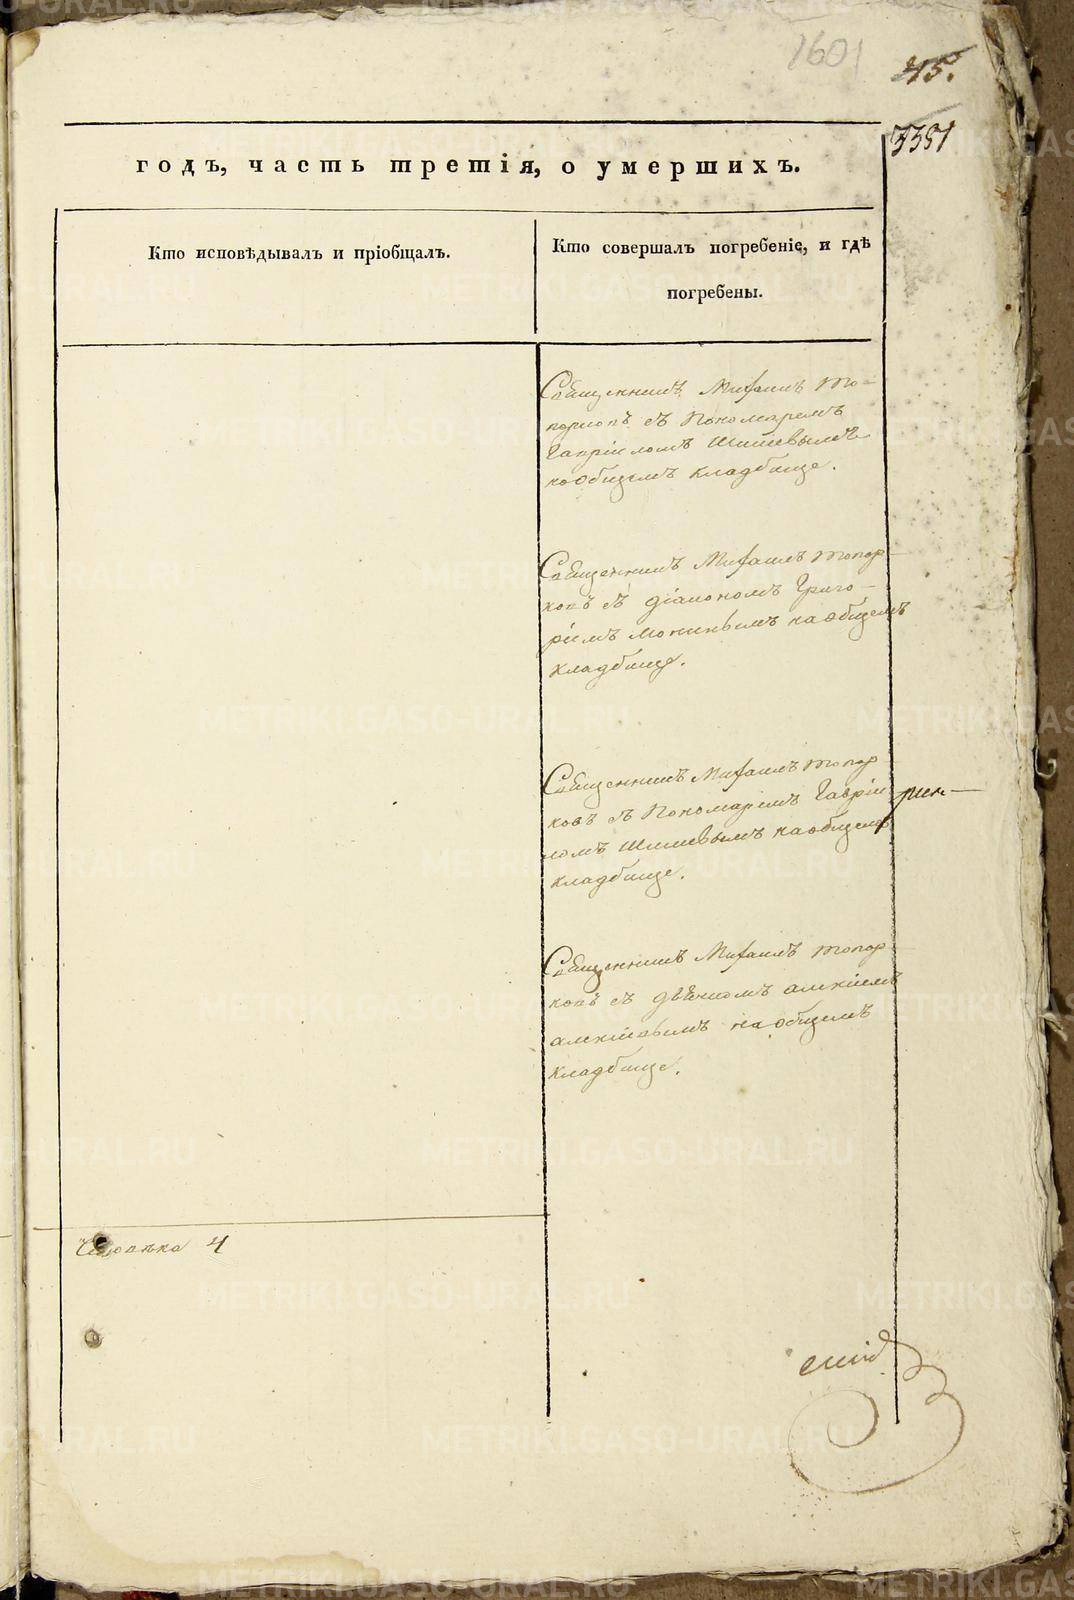 1601
45.
годъ, часть третія, о умершихъ.
Кто исповѣдывалъ и пріобщалъ.
Кто совершалъ погребеніе, и гдѣ
погребены.
Священникъ Михаилъ То-
порковъ съ Пономаремъ
Гавріиломъ Шишевымъ
на общемъ кладбище.
Священникъ Михаилъ Топор-
ковъ съ діакономъ Григо-
ріемъ на общемъ
кладбище.
Священникъ Михаилъ Топор-
ковъ съ Пономаремъ Гавріи-
ломъ Шишевымъ на общемъ
кладбище.
Священникъ Михаилъ Топор-
ковъ съ дьячкомъ
на общемъ
кладбище.
Человѣка 4
METRIKI.GASO-URAL.RU